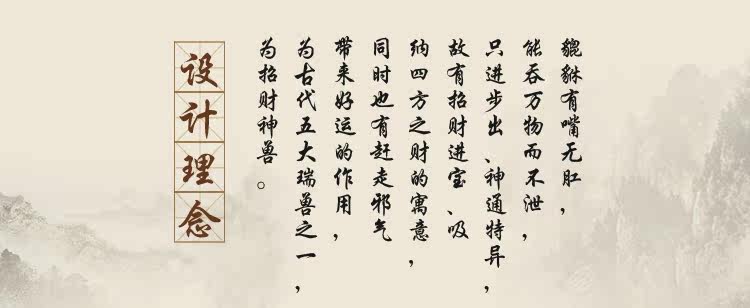 貔貅有嘴无肛，
能吞万物而不泄，
只进步出、神通特异，
故有招财进宝、吸
纳四方之财的寓意，
同时也有赶走邪气
带来好运的作用，
为古代五大瑞兽之一，
为招财神兽。
设计理念